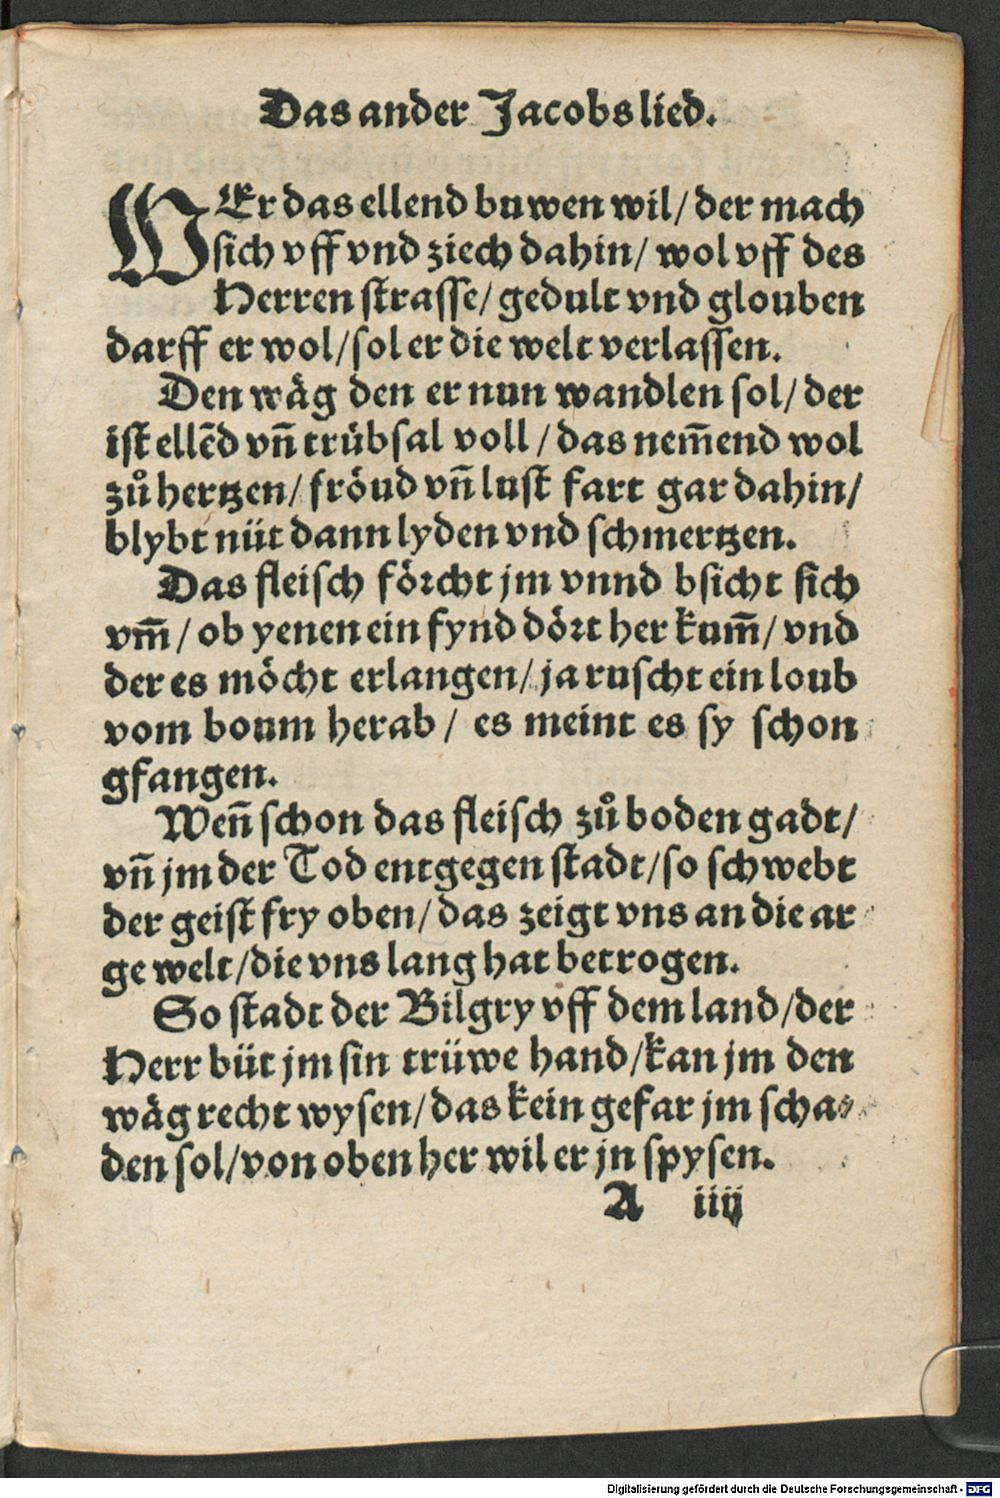 Das ander Jacobs lied.
WEr das ellend buwen wil/ der mach
sich vff vnd ziech dahin/ wol vff des
Herren strasse/ gedult vnd glouben
darff er wol/ sol er die welt verlassen.
Den wäg den er nun wandlen sol/ der
ist ellēd vn̄ trübsal voll / das nem̄end wol
zů hertzen/ fröud vn̄ lust fart gar dahin/
blybt nüt dann lyden vnd schmertzen.
Das fleisch förcht jm vnnd bsicht sich
vm̄/ ob yenen ein fynd dört her kum̄/ vnd
der es möcht erlangen/ ja ruscht ein loub
vom boum herab/ es meint es sy schon
gfangen.
Wen̄ schon das fleisch zů boden gadt/
vn̄ jm der Tod entgegen stadt/ so schwebt
der geist fry oben/ das zeigt vns an die ar
ge welt/ die vns lang hat betrogen.
So stadt der Bilgry vff dem land/ der
Herr büt jm sin trüwe hand/ kan jm den
wäg recht wysen/ das kein gefar jm scha⸗
den sol/ von oben her wil er jn spysen.
A iiij
Digitalisierung gefördert durch die Deutsche Forschungsgemeinschaft - DFG